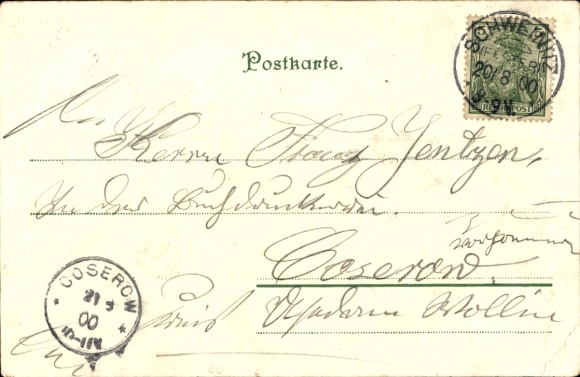 Postkarte.
SCHWEINITZ
20/8 00
8-9N.
REICHSPOST
An
Herrn Franz Jentzen,
In der Buchdruckerei
Coserow.
Kreis Usedom Wollin
COSEROW
21 8
00